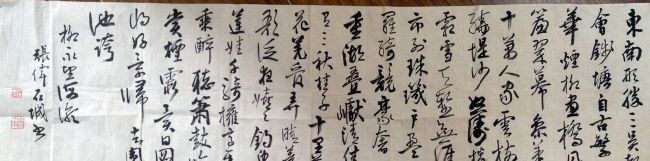 東南形勝三吳
會錢塘自古繁
華煙柳畫橋風
簾翠幕參差
十萬人家雲樹
繞堤沙怒濤捲
霜雪天塹無涯
市列珠璣戶盈
羅綺競豪奢
重湖疊巘清佳
有三秋桂子十里
花羌管弄晴菱
歌泛夜嬉嬉釣叟
蓮娃千騎擁高牙
乘醉聽簫鼓吟
賞煙霞異日圖
將好景歸去鳳
池誇
柳永望海潮
張偉石城書